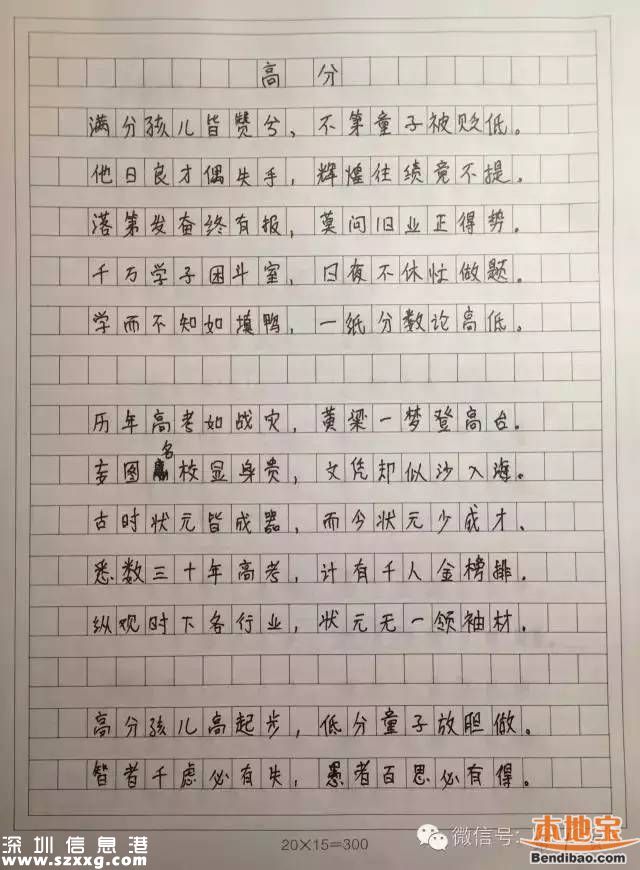 高分
满分孩儿皆赞兮，不第童子被贬低。
他日良才偶失手，辉煌往绩竟不提。
落第发奋终有报，莫问旧业正得势。
千万学子困斗室，日夜不休忙做题。
学而不知如填鸭，一纸分数论高低。
历年高考如战灾，黄梁一梦登高台。
图名校显身贵，文凭却似沙入海。
古时状元皆成器，而今状元少成才、
悉数三十年高考，计有千人金榜排．
纵观时下各行业，状元无一领袖材．
高分孩儿高起步，低分童子放胆做。
智者千虑必有失，愚者百思必有得。
20×15=300
微信号：
深圳信息港
www.szxxg.com
本地宝
Bendibao.com